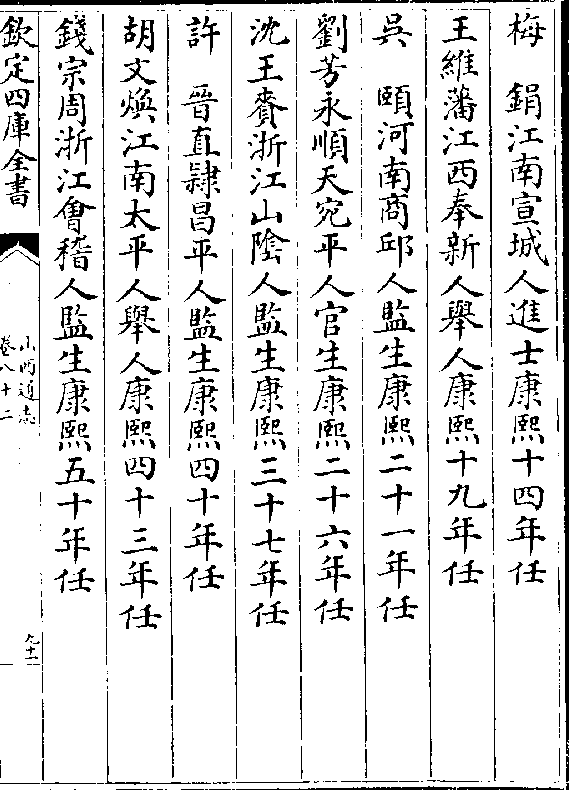 梅　鋗江南宣城人進士康熙十四年任
王維藩江西奉新人舉人康熙十九年任
吳　頤河南商邱人監生康熙二十一年任
劉芳永順天宛平人官生康熙二十六年任
沈王賚浙江山陰人監生康熙三十七年任
許　晉直隸昌平人監生康熙四十年任
胡文煥江南太平人舉人康熙四十三年任
錢宗周浙江會稽人監生康熙五十年任
欽定四庫全書
山西通志
卷八十二
九十二